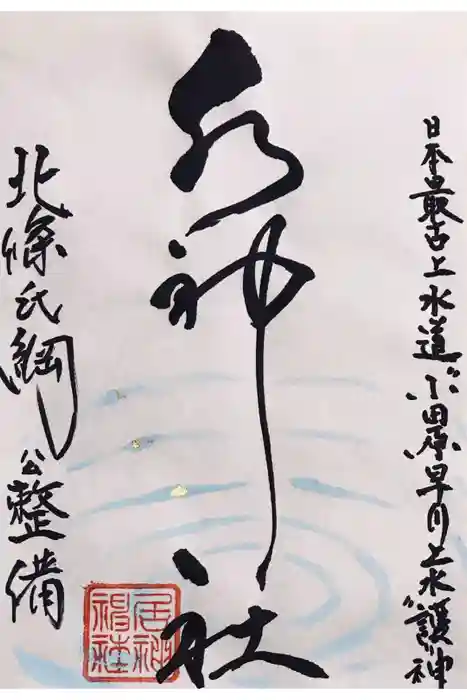 日本最古上水道小田原早川上水護神
水神社
北條氏綱公整備
居神神社